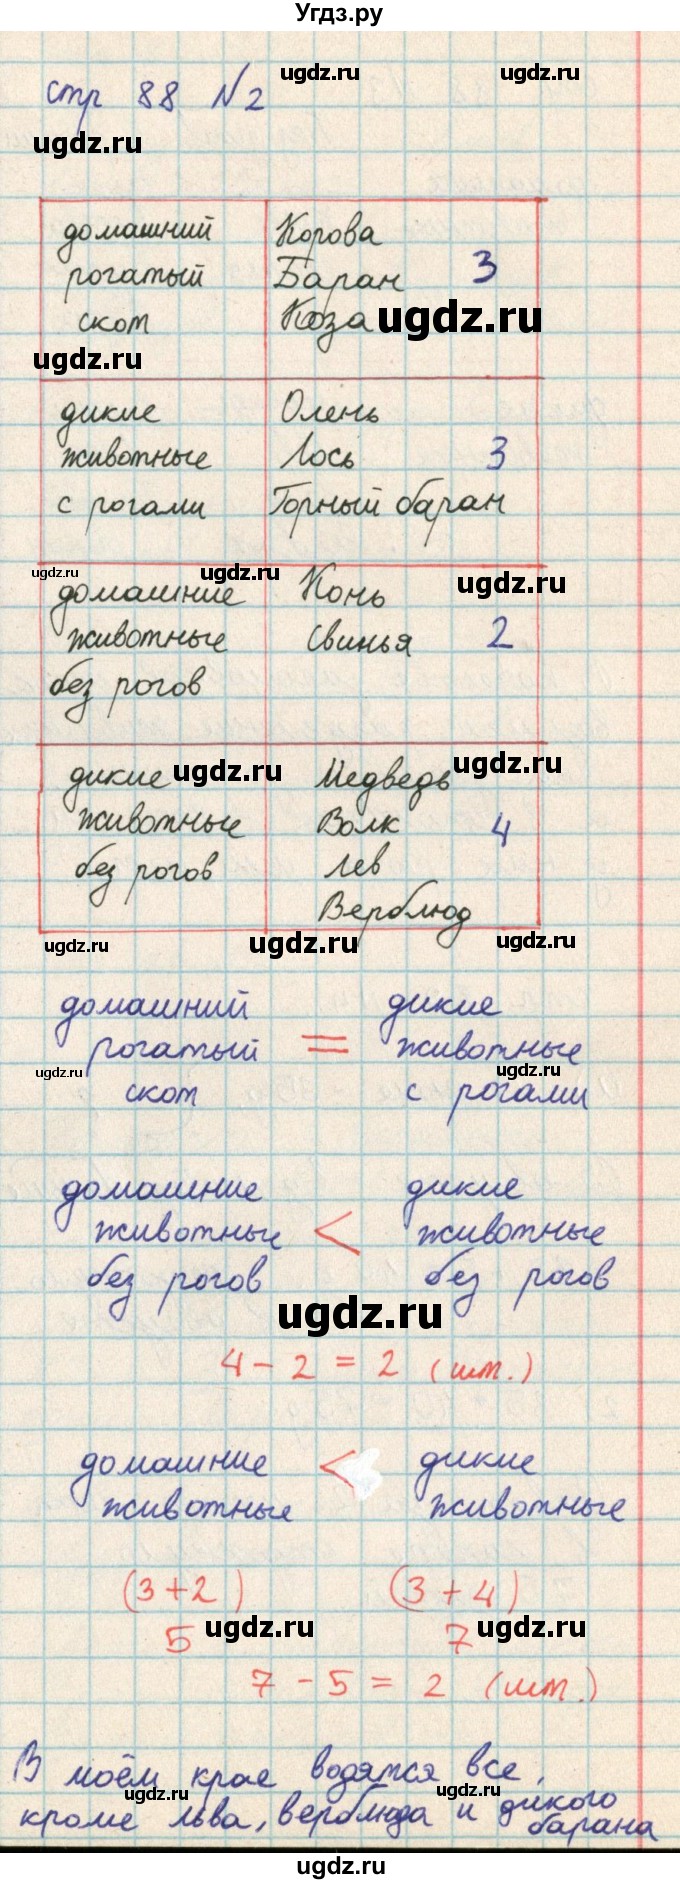 Угдз.ру
стр 88 №2
ugdz.ru ugdz.ru
ugdz.ru
домашний рогатый скот
Корова
Баран 3
Коза
ugdz.ru
ugdz.ru
дикие животные с рогами
Олень
Лось 3
Горный баран
ugdz.ru ugdz.ru ugdz.ru
домашние животные без рогов
Конь
Свинья 2
дикие животные без рогов
ugdz.ru ugdz.ru
Медведь
Волк 4
Лев
Верблюд
ugdz.ru ugdz.ru ugdz.ru
домашний рогатый скот = дикие животные с рогами
ugdz.ru ugdz.ru
домашние животные без рогов < дикие животные без рогов
ugdz.ru
4 - 2 = 2 (шт.)
домашние животные < дикие животные
(3+2) (3+4)
5 ugdz.ru 7 ugdz.ru
7 - 5 = 2 (шт.)
В моём крае водятся все,
ugdz.ru ugdz.ru
кроме льва, верблюда и дикого
барана
ugdz.ru